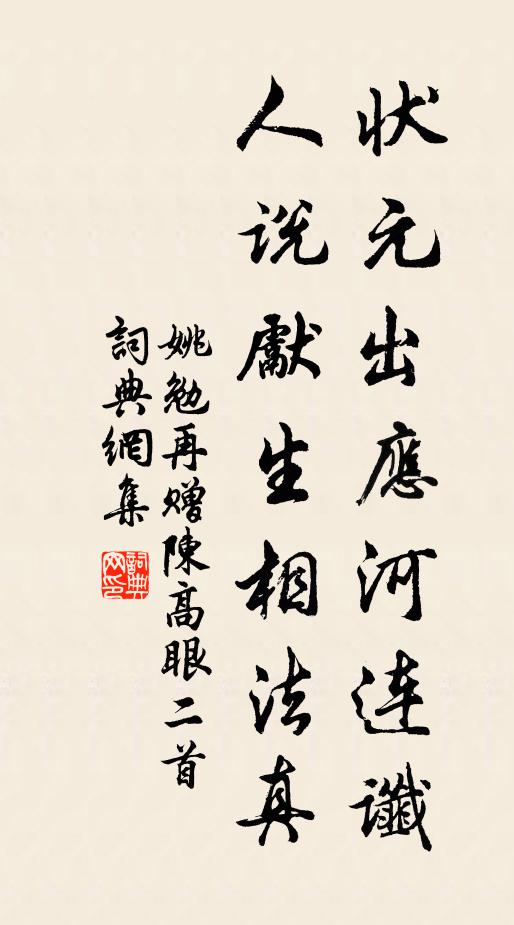 状元出應河連讖
人说獻生相法真
姚勉再赠陳高眼二首
詞典網集
詞典網印